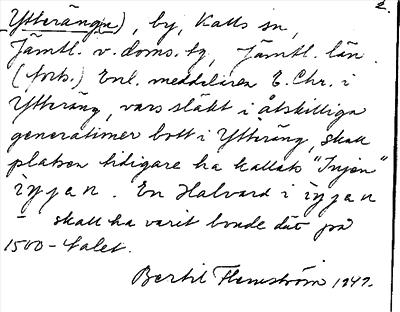 2.
Ytteräng(e), by, Kalls sn,
Jämtl. v. doms. tg, Jämtl. län.
(forts.) Enl. meddelaren E. Chr. i
Ytteräng, vars släkt i åtskilliga
generationer bott i Ytteräng, skall
platsen tidigare ha kallats "Injen"
ìnjan. En Halvard i ìnjan
- skall ha varit bonde där på
1500-talet.
Bertil Flemström 1947.